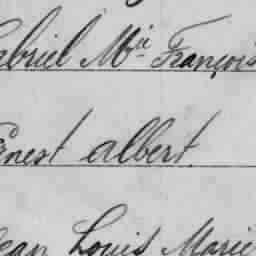 Gabriel Mie François
Ernest albert
Jean Louis Marie